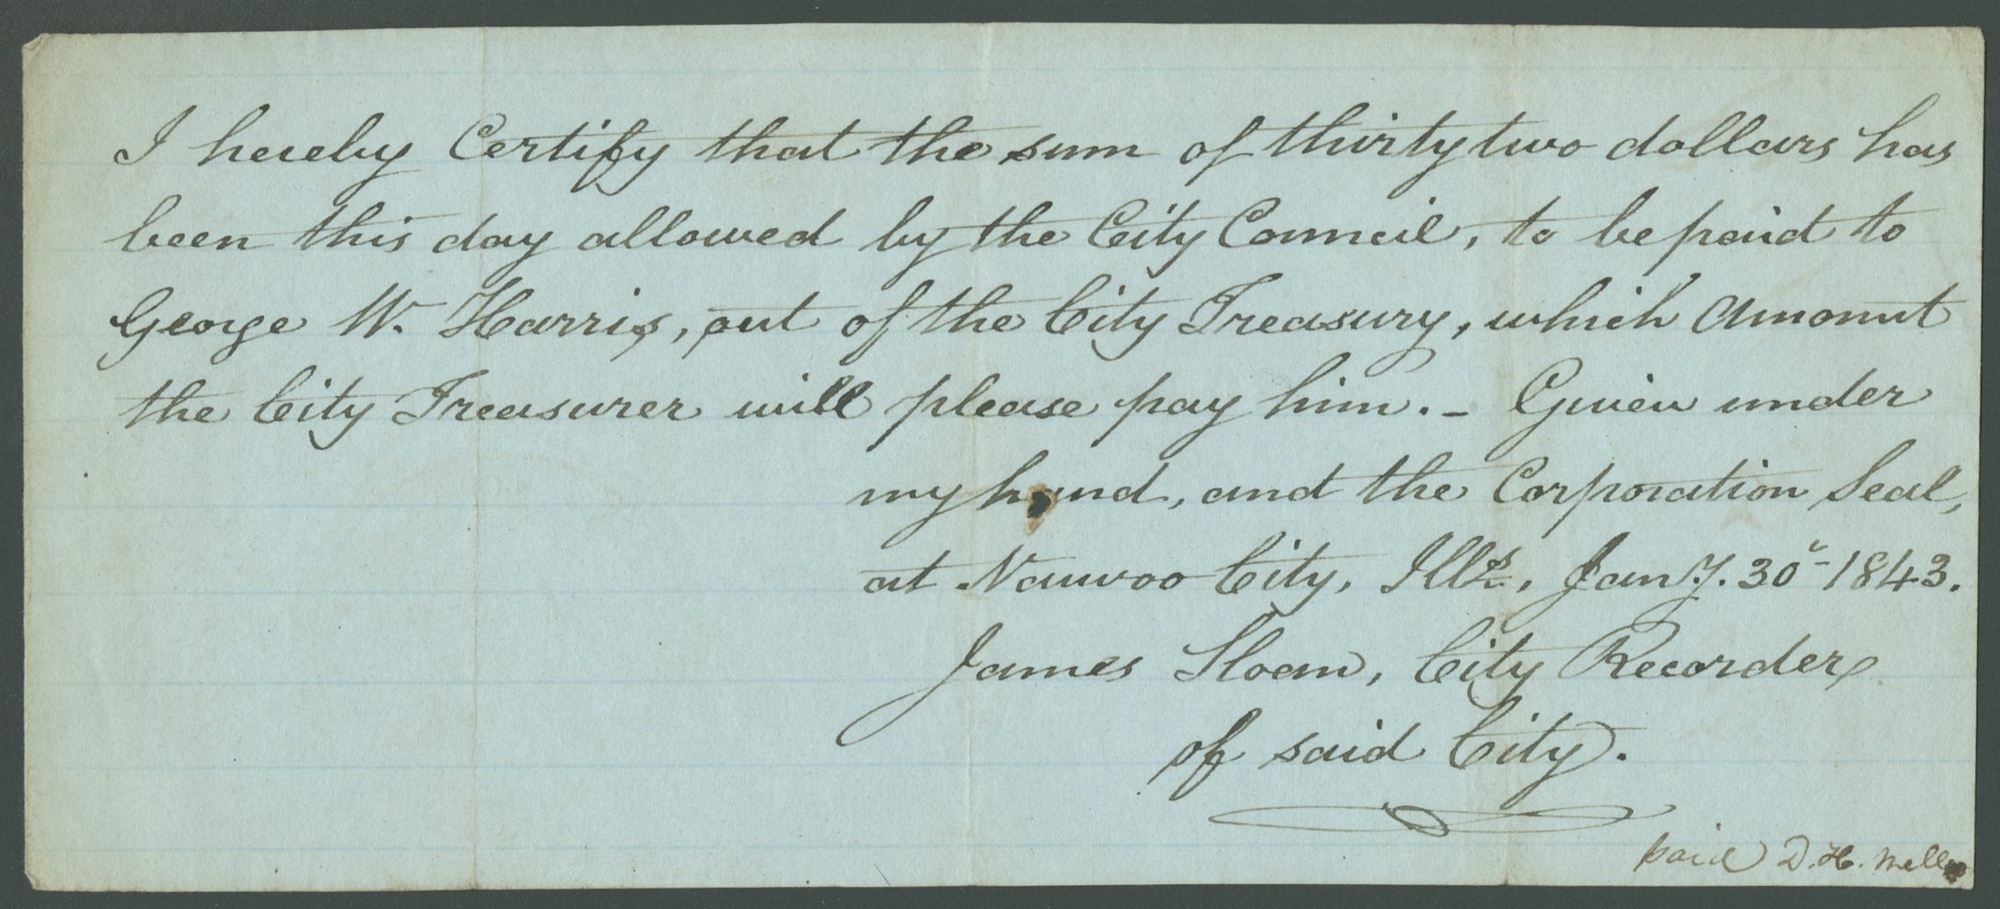 I hereby Certify that the sum of thirty two dollars has
been this day allowed by the City Council, to be paid to
George W. Harris, out of the City Treasury, which Amount
the City Treasurer will please pay him. – Given under
my hand, and the Corporation Seal,
at Nauvoo City, Ills., Jany. 30 1843.
James Sloan, City Recorder
of said City.
paid D. H. Wells